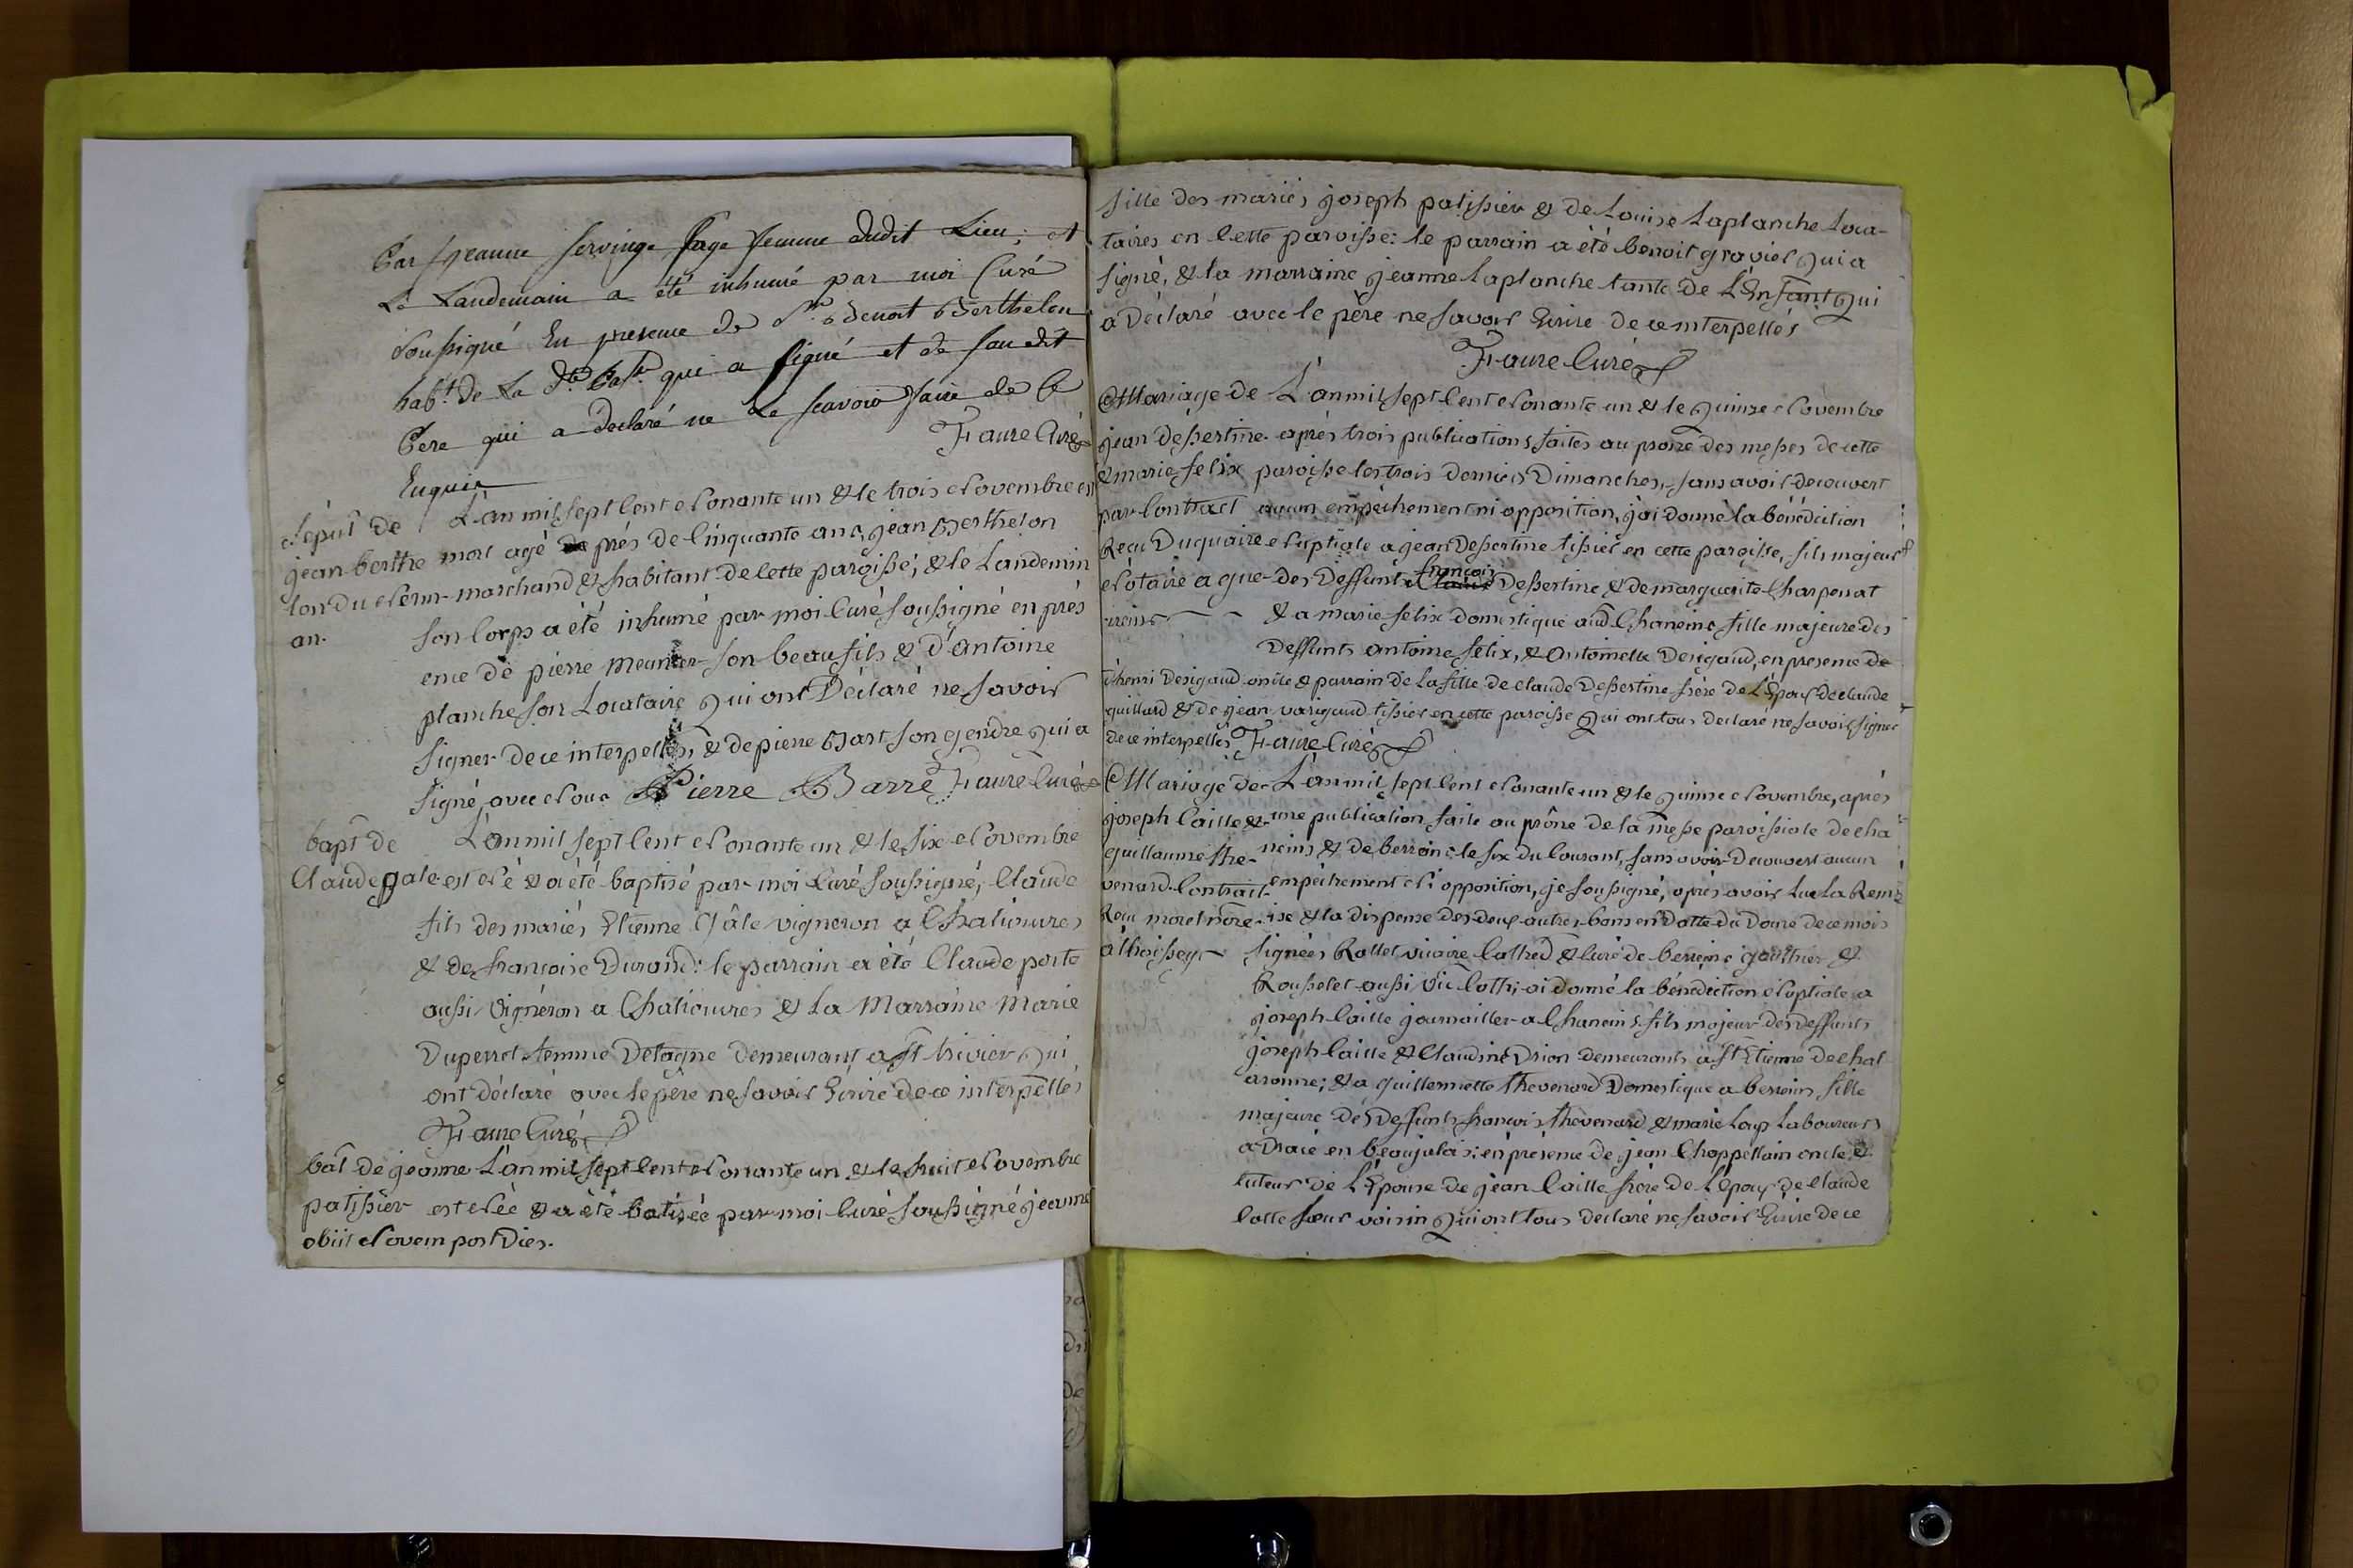 par jeanne servinge sage femme dudit Lieu; et
Le Landemain a été inhumé par moi Curé
soussigné En presence de Sr. benoit Berthelon
habt. de La dte. Passe. qui a signé et de son dit
Pere qui a declaré ne le scavoir faire de ce
Enquis Faure Curé
sepul de L'an mil sept Cent Nonante un & le trois Novembre est
jean berthe mort agé de prés de Cinquante ans, jean Berthelon
lon du Nenr marchand & habitant de Cette paroisse, & le Landemin
an. son Corps a été inhumé par moi Curé soussigné en prés
ence de pierre meunier son beau fils & d'antoine
planche son Locataire Qui ont Déclaré ne savoir
signer de ce interpellés, & de pierre Bart son gendre Qui a
signé, avec Nous Pierre Barre Faure Curé
bapt de L'an mil sept Cent Nonante un & le six Novembre
Claude gale est Né & a été baptisé par moi Curé soussigné, Claude
fils des mariés Etienne Gâle vigneron a Chaliouvres
& de françoise Durand: le parrain a été Claude porte
aussi vignéron a Chaliouvres & La Marraine Marie
Duperret femme Delogne demeurant a St trivier Qui
ont déclaré avec le pére ne savoir Ecrire de ce interpellés
Faure Curé
bat de jeanne L'an mil sept Cent Nonante un & le huit Novembre
patissier est Née & a été batisée par moi Curé soussigné jeanne
obiit Novem post Dies.
fille des mariés joseph patissier & de Louise Laplanche Loca-
taires en Cette paroisse: le parrain a été benoit gravier Qui a
signé, & la marraine jeanne Laplanche tante de L'Enfant Qui
a Déclaré avec le père ne savoir Ecrire de ce interpellés
Faure Curé
Mariage de L'an mil sept Cent Nonante un & le Quinze Novembre
jean dessertine aprés trois publications faites au prone des messes de cette
& marie felix paroisse les trois derniers Dimanches, sans avoir decouvert
par Contract aucun empêchement ni opposition, j'ai donné la bénédiction
Recu Duquaire Nuptiale a jean Dessertine tissier en cette paroisse, fils majeur
Notaire a gue- des Deffunts Claude françois Dessertine & de marguerite Charpenat
reins & a marie felix domestique aud Chaneins fille majeure des
Deffunts antoine felix, & antoinette Desigaud, en presence de
d'henri Desigaud oncle & parrain de La fille de claude Dessertine frère de L'Epoux de claude
guillard & de jean varigaud tissier en cette paroisse Qui ont tous declaré ne savoir signer
de ce interpellés Faure Curé
Mariage de L'an mil sept Cent Nonante un & le Quinze Novembre, aprés
joseph Caille & une publication faite au prône de la messe paroissiale de cha
guillaumé the- neins & de berreins le six du Courant, sans avoir decouvert aucun
venard. Contrait empêchement Ni opposition, je soussigné, aprés avoir Lue La Rem
Recu moret nore ise & la dispense des deux autres bans en Datte du Douze de ce mois
a thoissey signées Rollet vicaire Cathed & Curé de berreins gauthier &
Rousselet aussi vic Cath; ai donné la bénédiction Nuptiale a
joseph Caille journailler a Chaneins fils majeur des deffunts
joseph Caille & Claudine Drion demeurants a St Etienne de chal
aronne; & a guillemette thevenard Domestique a berreins fille
majeure des Deffunts francois thevenard & marie Loup Laboureurs
a Dracé en beaujolais: en présence de jean Chappellain oncle &
tuteur de L'Epouse de jean Caille frère de L'Epoux de Claude
Cotte soeur voisin Qui ont tous declaré ne savoir Ecrire de ce